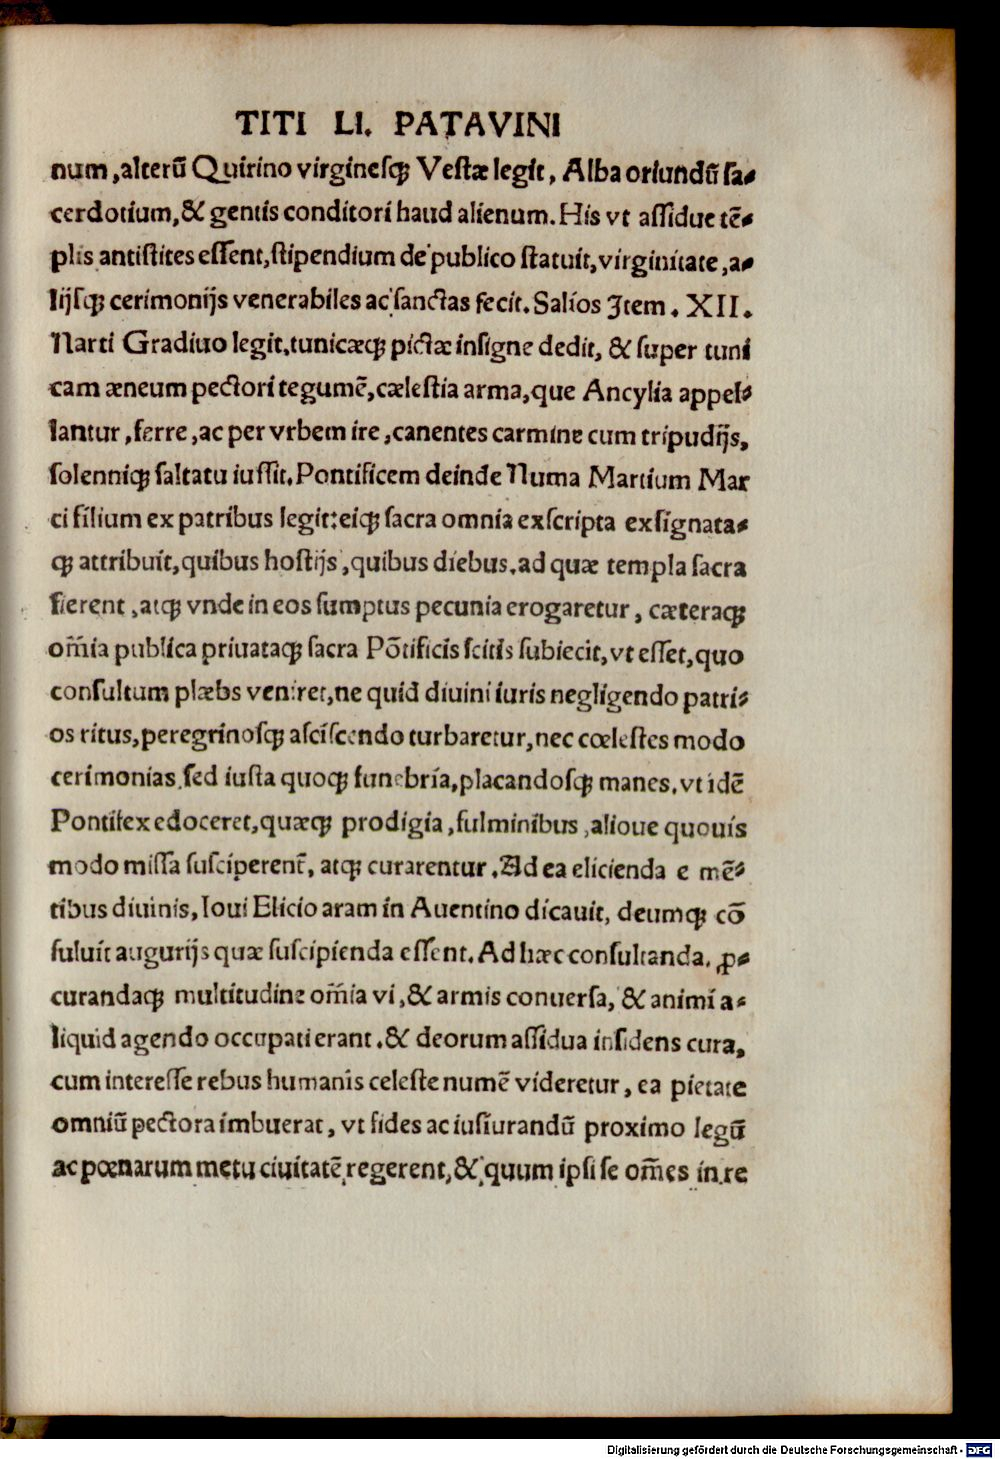 TITI LI. PATAVINI
num,alterū Quirino virginesqꝫ Vestæ legit, Alba oriundū sa-
cerdotium,& gentis conditori haud alienum. His vt assidue tē-
plis antistites essent,stipendium de publico statuit,virginitate,a-
lijsqꝫ cerimonijs venerabiles ac sanctas fecit. Salios Item . XII.
Narti Gradiuo legit.tunicæqꝫ pictæ insigne dedit, & super tuni
cam æneum pectori tegumē,cælestia arma,que Ancylia appel-
lantur,ferre,ac per vrbem ire,canentes carmine cum tripudijs,
solenniqꝫ saltatu iussit.Pontificem deinde Numa Martium Mar
ci filium ex patribus legit:eiqꝫ sacra omnia exscripta exsignata-
qꝫ attribuit,quibus hostijs,quibus diebus.ad quæ templa sacra
fierent,atqꝫ vnde in eos sumptus pecunia erogaretur, cæteraqꝫ
om̄ia publica priuataqꝫ sacra Pōtificis scitis subiecit,vt esset,quo
consultum plæbs veniret,ne quid diuini iuris negligendo patri-
os ritus,peregrinosqꝫ asciscendo turbaretur,nec cœlestes modo
cerimonias.sed iusta quoqꝫ funebria,placandosqꝫ manes.vt idē
Pontifex edoceret,quæqꝫ prodigia,fulminibus,alioue quouis
modo missa susciperent̄, atqꝫ curarentur.Ad ea elicienda e mē-
tibus diuinis,Ioui Elicio aram in Auentino dicauit, deumqꝫ cō
suluit augurijs quæ suscipienda essent.Ad hæc consultanda.ꝓ-
curandaqꝫ multitudine om̄ia vi,& armis conuersa, & animi a-
liquid agendo occupati erant.& deorum assidua insidens cura,
cum interesse rebus humanis celeste numē videretur, ea pietate
omniū pectora imbuerat, vt fides ac iusiurandū proximo legū
ac pœnarum metu ciuitatē regerent,& quum ipsi se om̄es in re
Digitalisierung gefördert durch die Deutsche Forschungsgemeinschaft - DFG